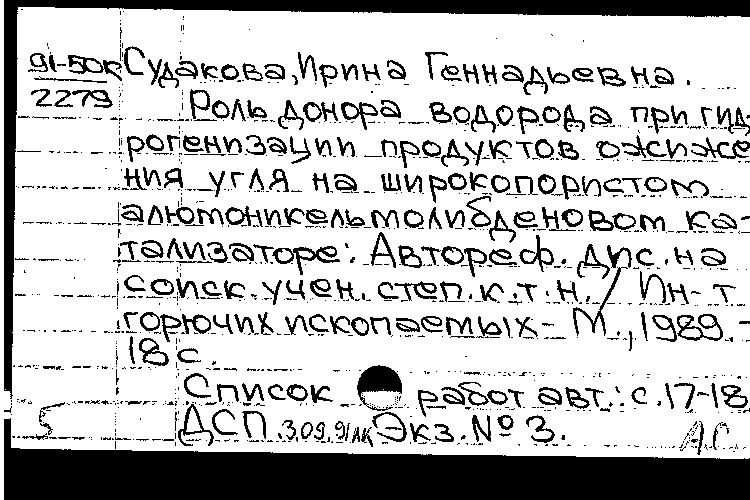 91-50к Судакова, Ирина Геннадьевна.
2279 Роль донора водорода при гид-
рогенизации продуктов ожиже
ния угля на широкопористом
алюмоникельмолибденовом ка-
тализаторе: Автореф. дис. на
соиск. учен. степ. к.т.н. / Ин-т
горючих ископаемых - М., 1989. -
18 с.
Список работ авт.: с. 17-18
5 ДСП. 3.09.91 Экз. № 3. А.С.